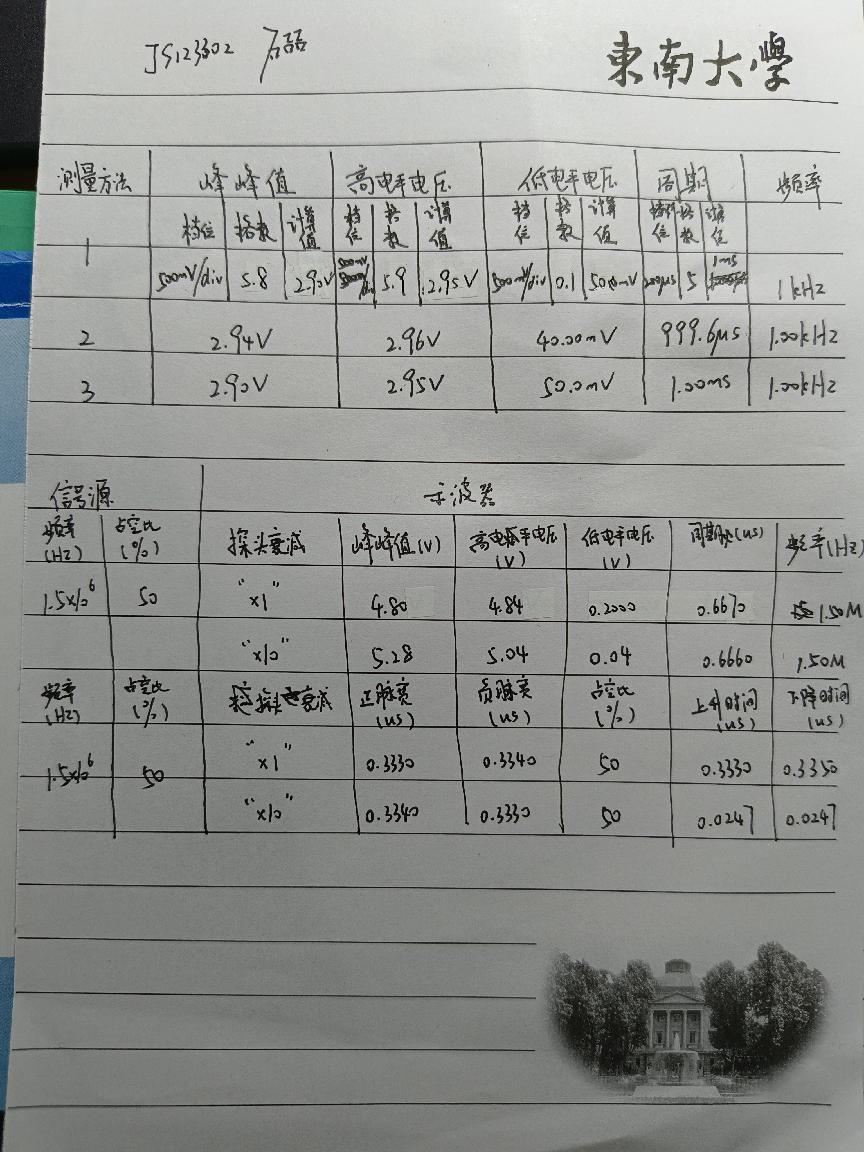 JS123302 石磊
東南大學
测量方法 峰峰值 高电平电压 低电平电压 周期 频率
1 档位 格数 计算值 档位 格数 计算值 档位 格数 计算值 档位 格数
500mV/div 5.8 2.90V 500mV 5.9 2.95V 500mV/div 0.1 50.0mV 200μs 5 1ms 1kHz
2 2.94V 2.96V 40.00mV 999.6μs 1.00kHz
3 2.90V 2.95V 50.0mV 1.00ms 1.00kHz
信号源 示波器
频率(HZ) 占空比(%) 探头衰减 峰峰值(V) 高电平电压(V) 低电平电压(V) 周期(us) 频率(HZ)
1.5x10⁶ 50 "x1" 4.80 4.84 0.2000 0.6670 1.50M
"x10" 5.28 5.04 0.04 0.6660 1.50M
频率(HZ) 占空比(%) 探头衰减 正脉宽(us) 负脉宽(us) 占空比(%) 上升时间(us) 下降时间(us)
1.5x10⁶ 50 "x1" 0.3330 0.3340 50 0.3330 0.3350
"x10" 0.3340 0.3330 50 0.0247 0.0247